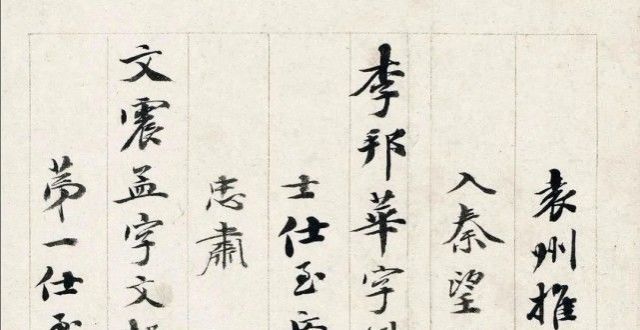 袁州推
入秦望
李邦華字
士仕至
忠肅
文震孟字文
第一仕至